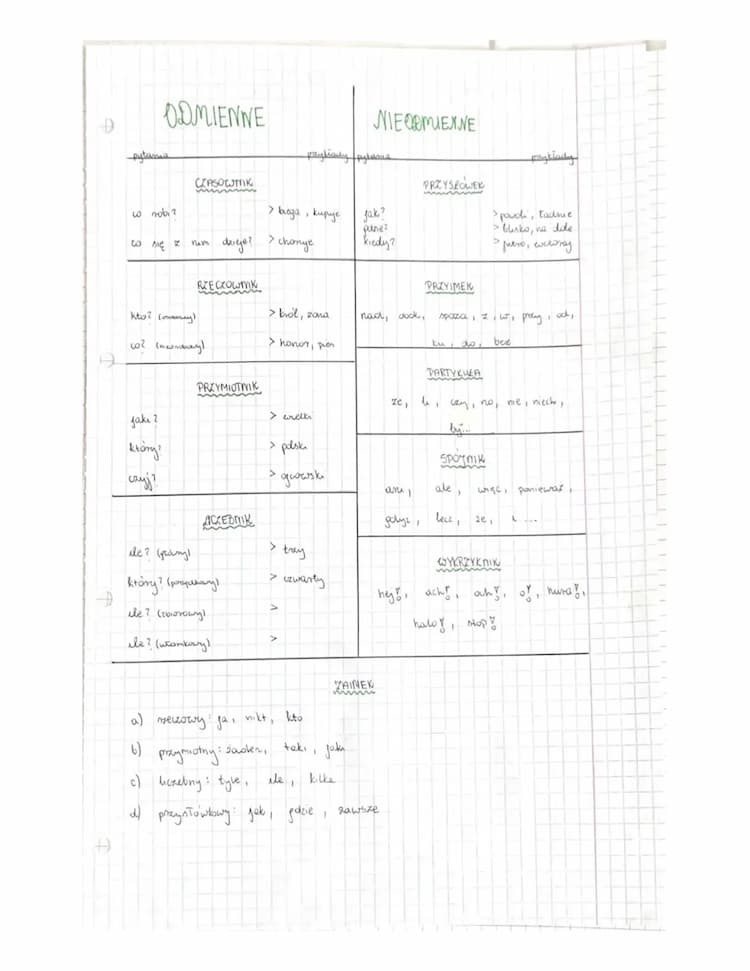 ODMIENNE
NIEODMIENNE
pytania przykłady
pytania przykłady
CZASOWNIK
co robi? > biega, kupuje
co się z nim dzieje? > choruje
RZECZOWNIK
kto? > król, żona
co? > honor,
PRZYMIOTNIK
jaki? > wielki
który? > polski
czyj? > ojcowski
LICZEBNIK
ile? (główny) > trzy
który? (porządkowy) > czwarty
ile? (zbiorowy) >
ile? (ułamkowy) >
PRZYSŁÓWEK
jak? > powoli, ładnie
gdzie? > blisko, na dole
kiedy? > jutro, wczoraj
PRZYIMEK
nad, spoza, z, w, przy, od,
ku, do, bez
PARTYKUŁA
że, li, czy, no, nie, niech,
by...
SPÓJNIK
ani, ale, więc, ponieważ,
gdyż, lecz, że, i ...
WYKRZYKNIK
hej!, ach!, och!, o!, hura!,
halo!, stop!
ZAIMEK
a) rzeczowny: ja, nikt, kto
b) przymiotny: żaden, taki, jaki
c) liczebny: tyle, ile, kilka
d) przysłówkowy: jak, gdzie, zawsze